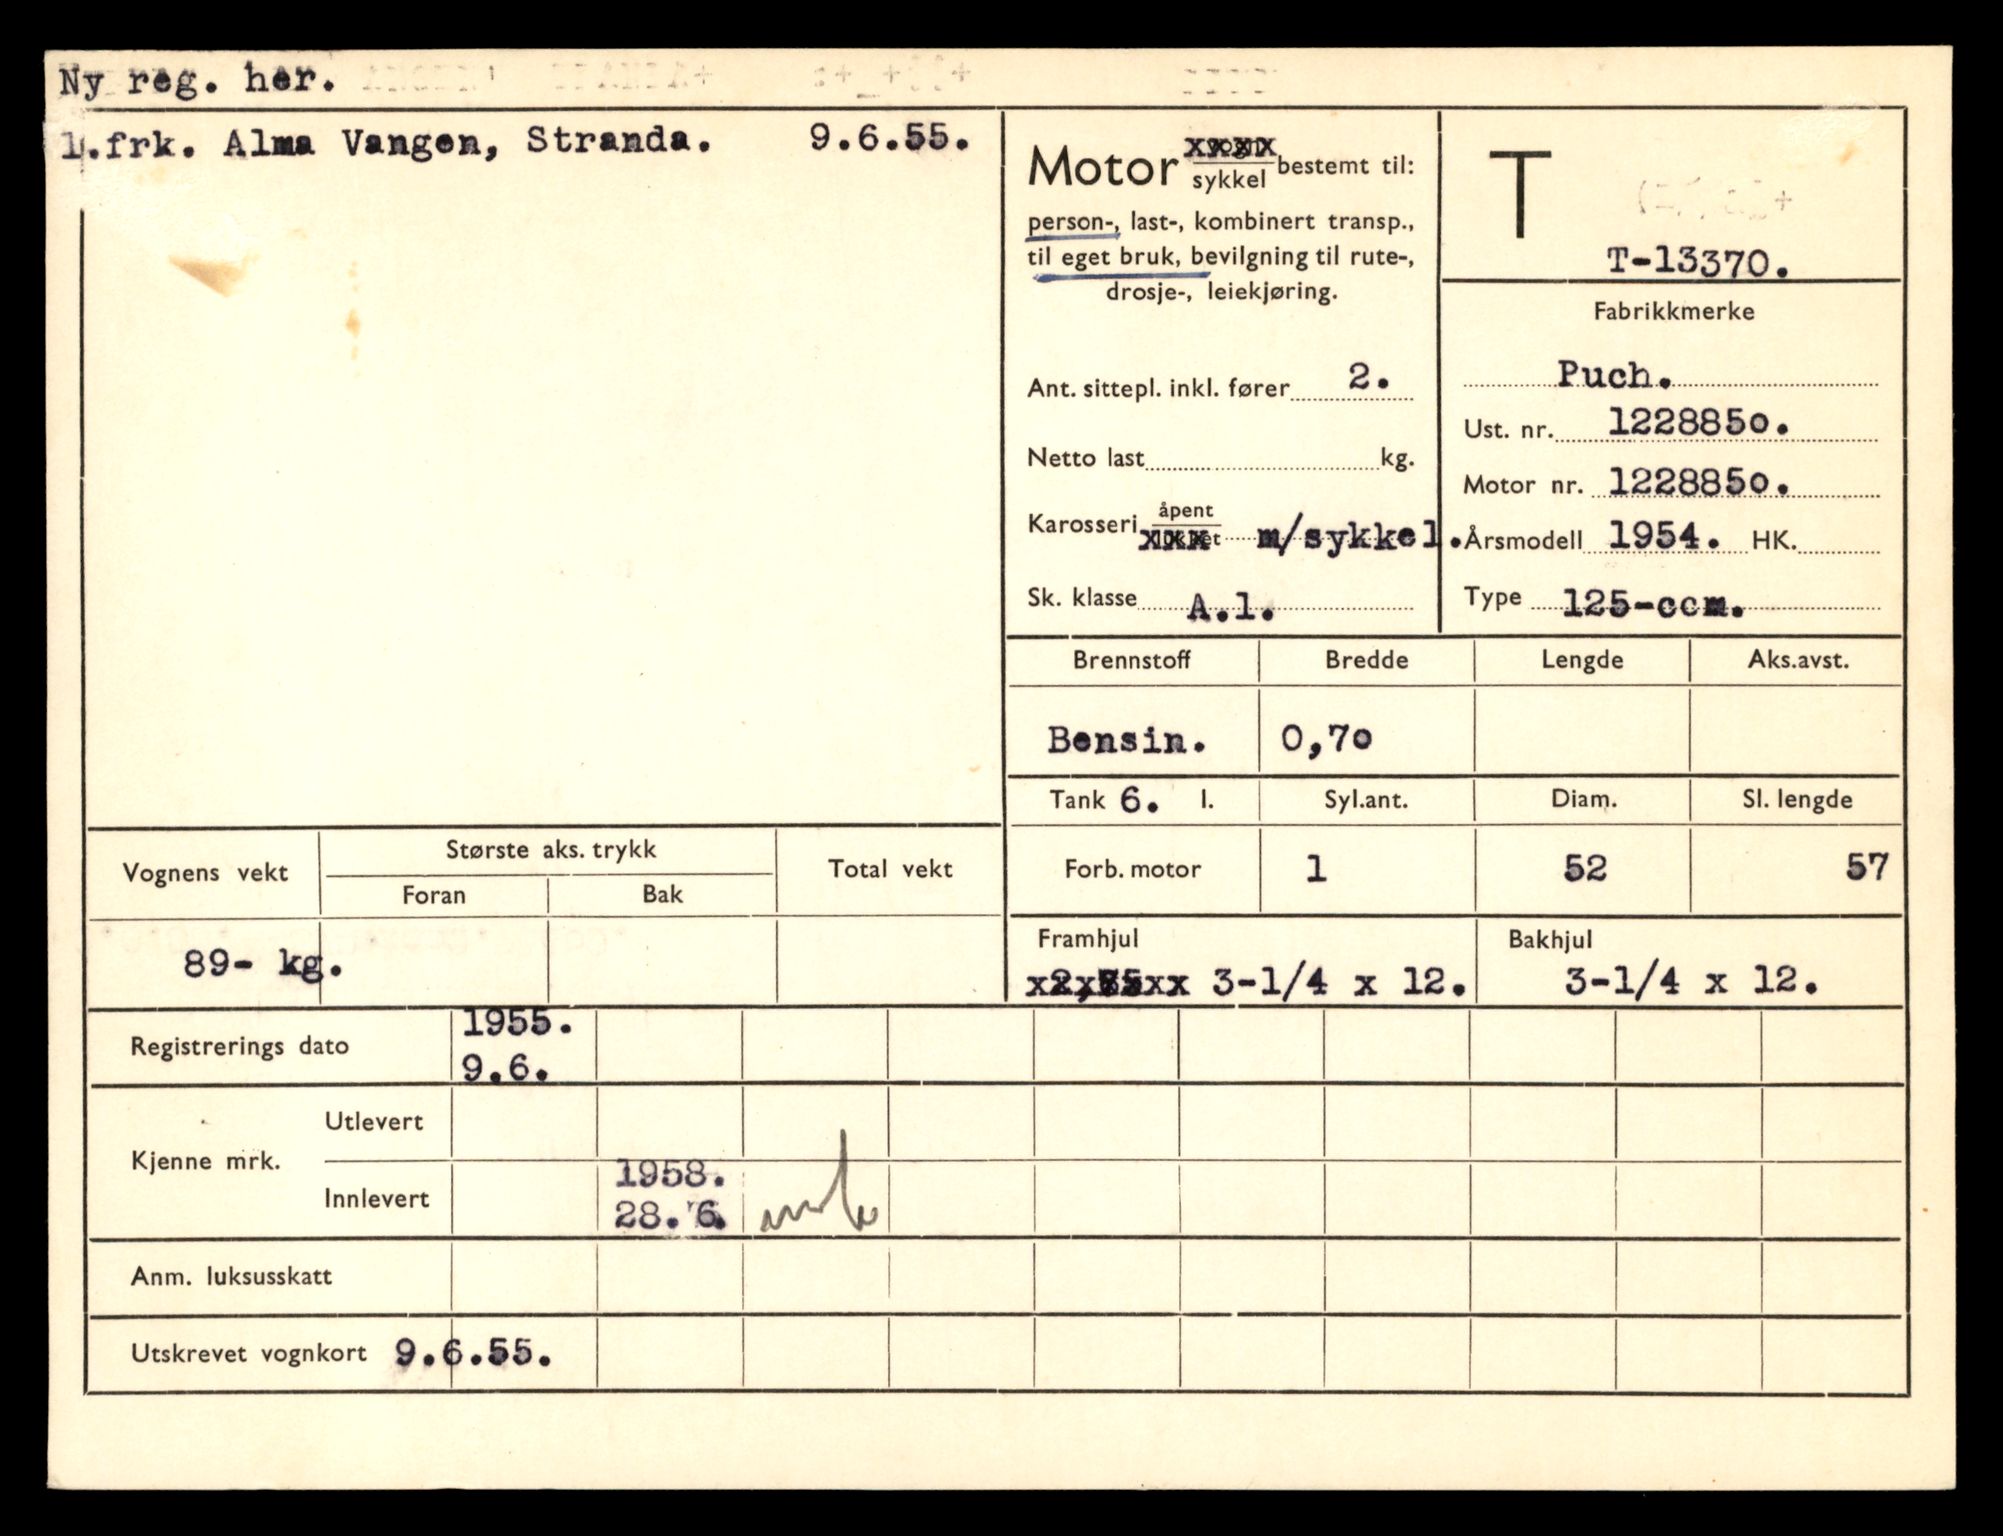 Ny reg. her.
1.frk. Alma Vangen, Stranda. 9.6.55.
Motor xxxx sykkel bestemt til:
person-, last-, kombinert transp.,
til eget bruk, bevilgning til rute-,
drosje-, leiekjøring.
Ant. sittepl. inkl. fører 2.
Netto last kg.
Karosseri åpent xxx m/sykkel.
Sk. klasse A.1.
T
T-13370.
Fabrikkmerke
Puch.
Ust. nr. 1228850.
Motor nr. 1228850.
Årsmodell 1954. HK.
Type 125-ccm.
Brennstoff Bredde Lengde Aks.avst.
Bensin. 0,70
Tank 6. l. Syl.ant. Diam. Sl. lengde
Forb. motor 1 52 57
Framhjul Bakhjul
3-1/4 x 12. 3-1/4 x 12.
Vognens vekt Største aks. trykk Total vekt
Foran Bak
89- kg.
Registrerings dato 1955.
9.6.
Kjenne mrk. Utlevert
Innlevert 1958.
28. 6.
Anm. luksusskatt
Utskrevet vognkort 9.6.55.